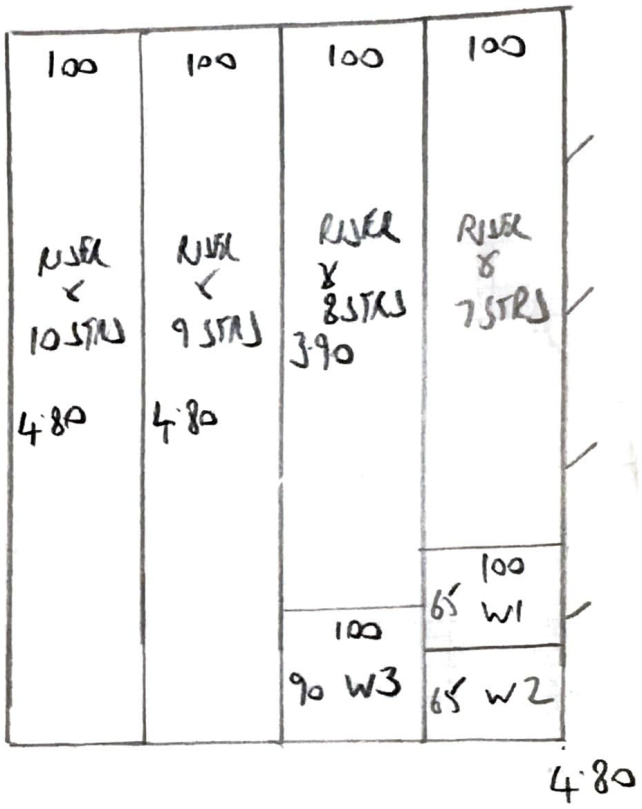 100
RISER
&
10 STRS
4.80
100
RISER
&
9 STRS
4.80
100
RISER
&
8 STRS
3.90
100
90 W3
100
RISER
&
7 STRS
100
65 W1
65 W2
4.80